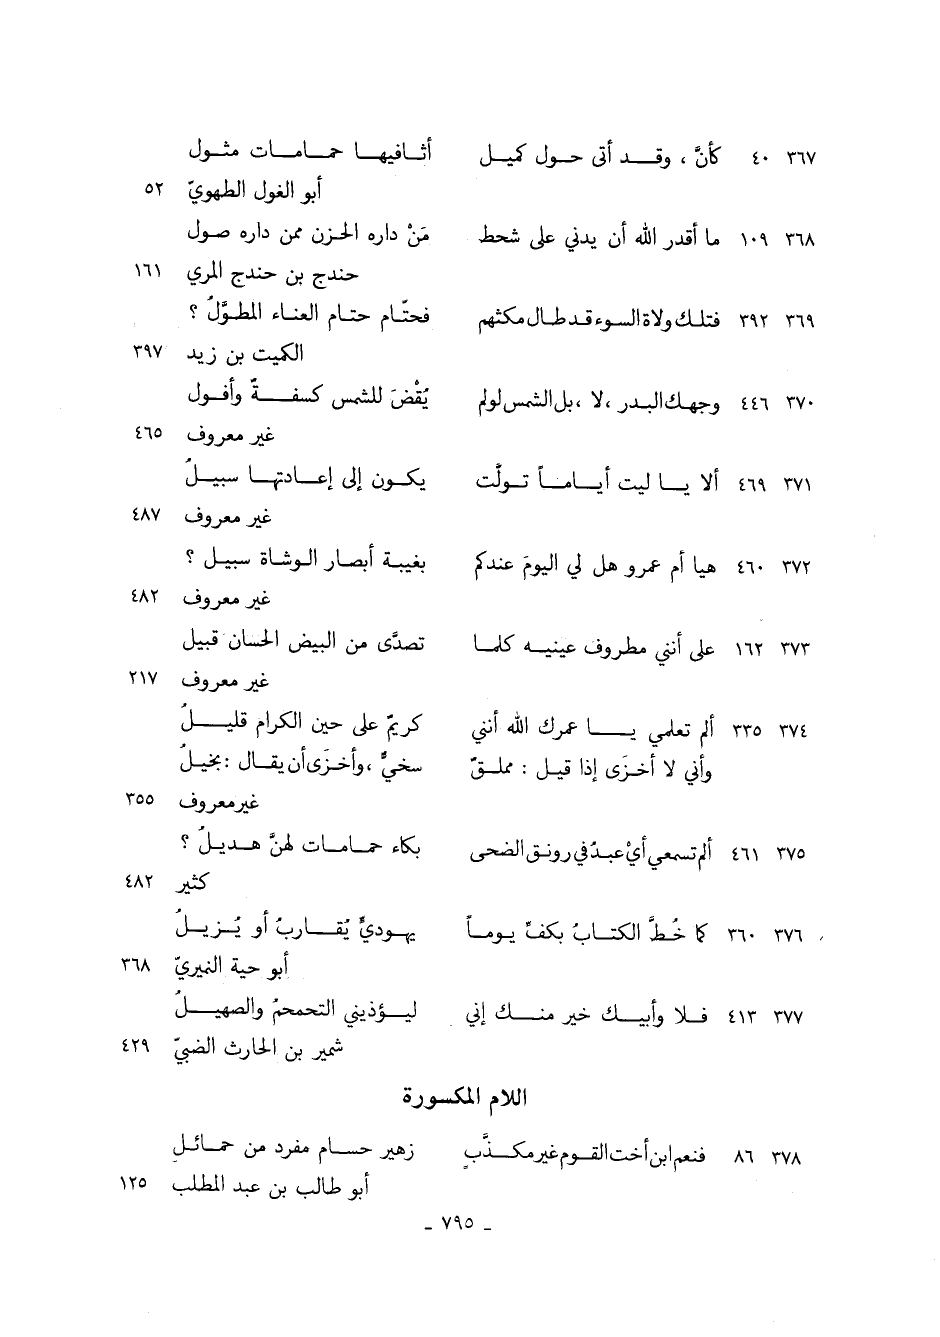 ٣٦٧ ٤٠ كأنَّ ، وقد أتى حول كميل أثافيها حمامات مثول
أبو الغول الطهويّ ٥٢
٣٦٨ ١٠٩ ما أقدر الله أن يدني على شحط مَنْ داره الحزن ممن داره صول
حندج بن حندج المري ١٦١
٣٦٩ ٣٩٢ فتلك ولاة السوء قد طال مكثهم فحتّام حتام العناء المطوَّلُ ؟
الكميت بن زيد ٣٩٧
٣٧٠ ٤٤٦ وجهك البدر ، لا ، بل الشمس لو لم يُقْضَ للشمس كسفةٌ وأفول
غير معروف ٤٦٥
٣٧١ ٤٦٩ ألا يا ليت أياماً تولَّت يكون إلى إعادتها سبيلُ
غير معروف ٤٨٧
٣٧٢ ٤٦٠ هيا أم عمرو هل لي اليومَ عندكم بغيبة أبصار الوشاة سبيل ؟
غير معروف ٤٨٢
٣٧٣ ١٦٢ على أنني مطروف عينيه كلما تصدَّى من البيض الحسان قبيل
غير معروف ٢١٧
٣٧٤ ٣٣٥ ألم تعلمي يا عمرك الله أنني كريمٌ على حين الكرام قليلُ
وأني لا أخزَى إذا قيل : مملقٌ سخيٌّ ، وأخزَى أن يقال : بخيلُ
غير معروف ٣٥٥
٣٧٥ ٤٦١ ألم تسمعي أيْ عبدُ في رونق الضحى بكاء حمامات لهنَّ هديلُ ؟
كثير ٤٨٢
٣٧٦ ٣٦٠ كما خُطَّ الكتابُ بكفِّ يوماً يهوديٍّ يُقاربُ أو يُزيلُ
أبو حية النميريّ ٣٦٨
٣٧٧ ٤١٣ فلا وأبيك خير منك إني ليؤذيني التحمحمُ والصهيلُ
شمير بن الحارث الضبيّ ٤٢٩
اللام المكسورة
٣٧٨ ٨٦ فنعم ابن أخت القوم غير مكذَّبٍ زهير حسام مفرد من حمائلِ
أبو طالب بن عبد المطلب ١٢٥
- ٧٩٥ -